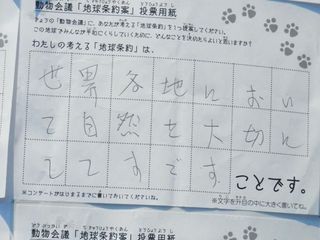 動物会議「地球条約案」投票用紙
きょうの「動物会議」に、あなたが考える「地球条約」を1つ提案してください。
この地球でみんなが平和にくらしていくために、どんなことを決めたらよいと思いますか?
わたしの考える「地球条約」は、
世界各地におい
て自然を大切に
してすです。
ことです。
※コンサートがはじまるまでに書いておいてくださいね。
※文字を升目の中に大きく書いてね。
動物会議「地球条約案」投票用紙